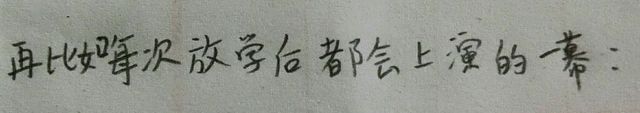 再比如每次放学后都会上演的一幕：